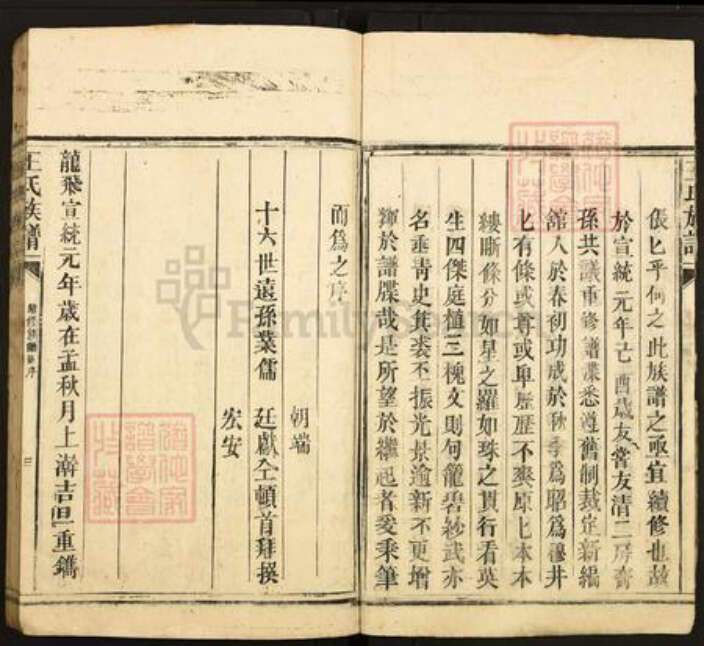 王氏族譜
倀匕乎何之此族譜之亟宜續修也茲
於宣統元年己酉歲友嘗友清二房齊
孫共議重修譜諜悉遵舊制裁定新編
舘人於春初功成於秋季爲昭爲穆井
匕有條或尊或卑歷歷不爽原匕本本
縷晰條分如星之羅如珠之貫行看英
生四傑庭植三槐文則句籠碧紗武亦
名垂靑史箕裘丕振光景逾新不更增
輝於譜牒哉是所望於繼起者爰乘筆
而爲之序
朝端
十六世遠孫業儒 廷獻仝頓首拜撰
宏安
龍飛宣統元年歲在孟秋月上澣吉旦重鐫
王氏族譜
FamilySearch